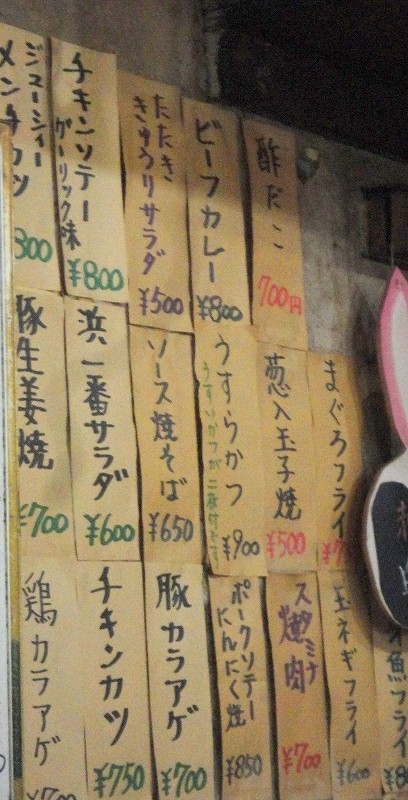 ジューシィー
メンチカツ
300
チキンソテー
ガーリック味
¥800
たたき
きゅうりサラダ
¥500
ビーフカレー
¥800
酢だこ
700円
豚生姜焼
¥700
浜一番サラダ
¥600
ソース焼そば
¥650
うすらかつ
うすいかつが二枚付です
¥900
葱入玉子焼
¥500
まぐろフライ
¥7
鶏カラアゲ
¥700
チキンカツ
¥750
豚カラアゲ
¥700
ポークソテー
にんにく焼
¥850
スタミナ
焼肉
¥700
玉ネギフライ
¥600
魚フライ
¥8